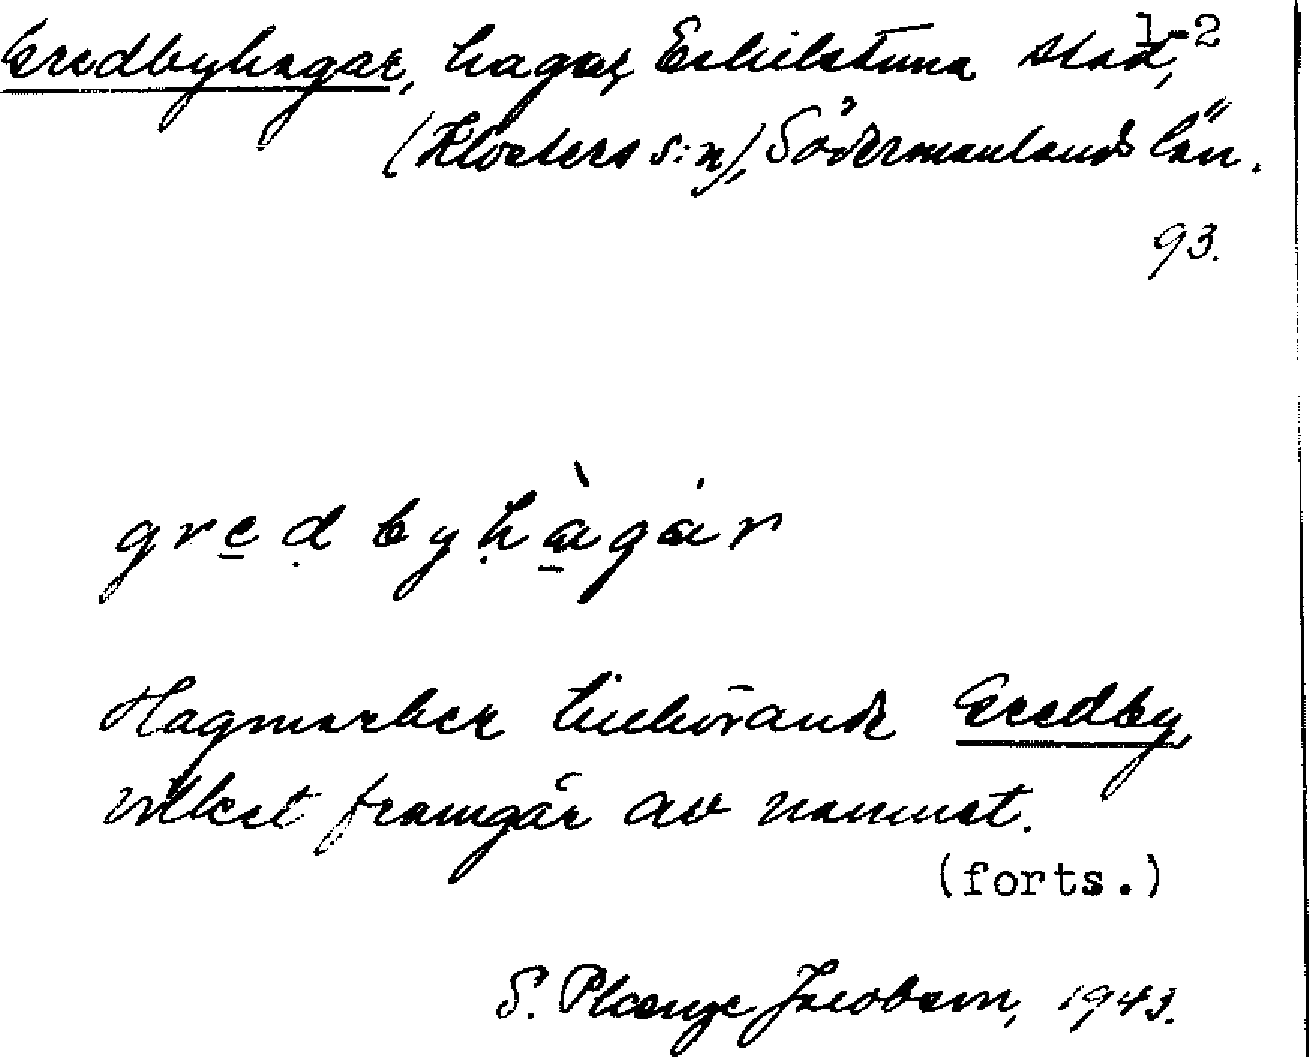 Gredbyhagar, hagar, Eskilstuna stad, 1-2
(Klosters s:n), Södermanlands län.
93.
gredbyhàgar
Hagmarker tillhörande Gredby,
vilket framgår av namnet.
(forts.)
S. Plænge Jacobson, 1943.